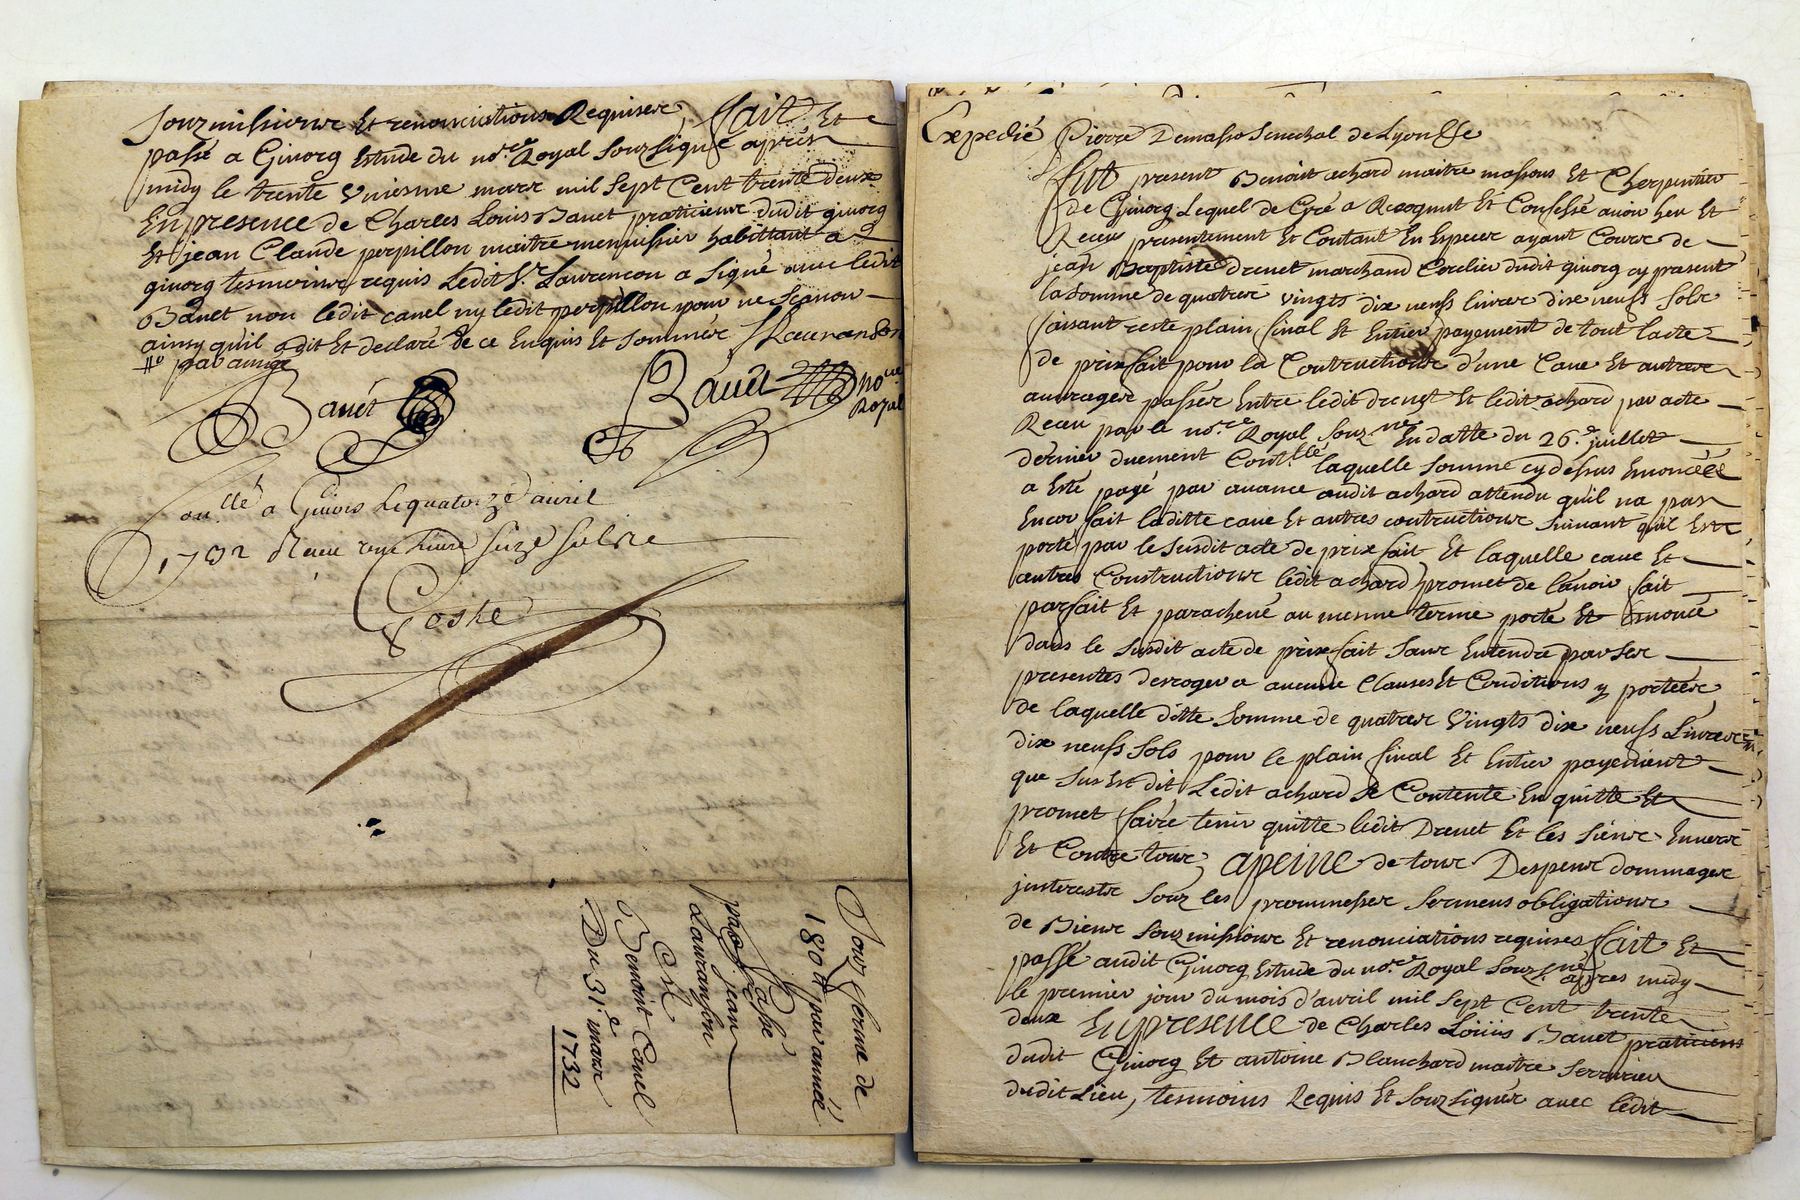 Souzmissions Et renonciations Requises, fait Et
passé a Givorg Estude du no.re Royal Souzsigné après
midy le trente Uniesme mars mil Sept Cent trente deux
En presence de Charles Louis Bauet praticiens dudit givorg
Et jean Claude perpillon maitre mennissier habittant a
givorg tesmoins requis Ledit Sr. Laurencon a Signé avec ledit
Bauet non ledit canel ny ledit perpillon pour ne Scavoir
ainsy qu'il a dit Et declaré de ce Enquis Et Sommés Lauranson
# par année
Bauét
Bauét no.re
Royal
Con.llé a Givors le quatorze avril
1732 Receu une livre Seize Sols
Coste
Pour ferme de
180 lt par année
passé
par jean
Lauranson
Et
Benoint Canel
Du 31.e mars
1732
Expedié Pierre Demasso Senechal de Lyon &c
fut present Benoist achard maitre massons Et Cherpentier
de Givorg Lequel de Gré a Recognut Et Confessé avoir heu Et
Receu presentement Et Contant En Especes ayant Cours de
jean Baptiste drevet marchand Cordier dudit givorg cy present
la Somme de quatres vingts dix neufs livres dix neufs Sols
faisant reste plain final Et Entier payement de tout lacte
de prixfait pour la Contructions d'une Cave Et autres
auvrages passés Entre ledit drevet Et ledit achard par acte
Receu par le no.re Royal Souz.né En datte du 26.e juillet
dernier duement Cont.llé laquelle Somme cy dessus Enoncéé
a Esté payé par avance audit achard attendu qu'il na pas
Encor fait laditte cave Et autres contructions Suivant qu'il Est
porté par le Susdit acte de prixfait Et laquelle cave Et
autres Constructions ledit achard promet de lavoir fait
parfait Et parachevé au mesme terme porté Et Enoncé
dans le Susdit acte de prixfait Sans Entendre par Ses
presentes desroger a aucune Clauses Et Conditions y portéés
de laquelle ditte Somme de quatres Vingts dix neufs Livres
dix neufs Sols pour le plain final Et Entier payement
que Sus Est dit Ledit achard Se Contente En quitte Et
promet faire tenir quitte ledit Drevet Et les Siens Envers
Et Contre tous, apeine de tous Despens dommages
jnterests Souz les prommesses Sermens obligations
de Biens Souzmissions Et renonciations requises fait Et
passé audit Givorg Estude du no.re Royal Souz.né après midy
le premier jour du mois d'avril mil Sept Cent trente
deux En presence de Charles Louis Bauet praticiens
dudit Givorg Et antoine Blanchard maitre Serrurier
dudit Lieu, tesmoins Requis Et Souzsignés avec ledit